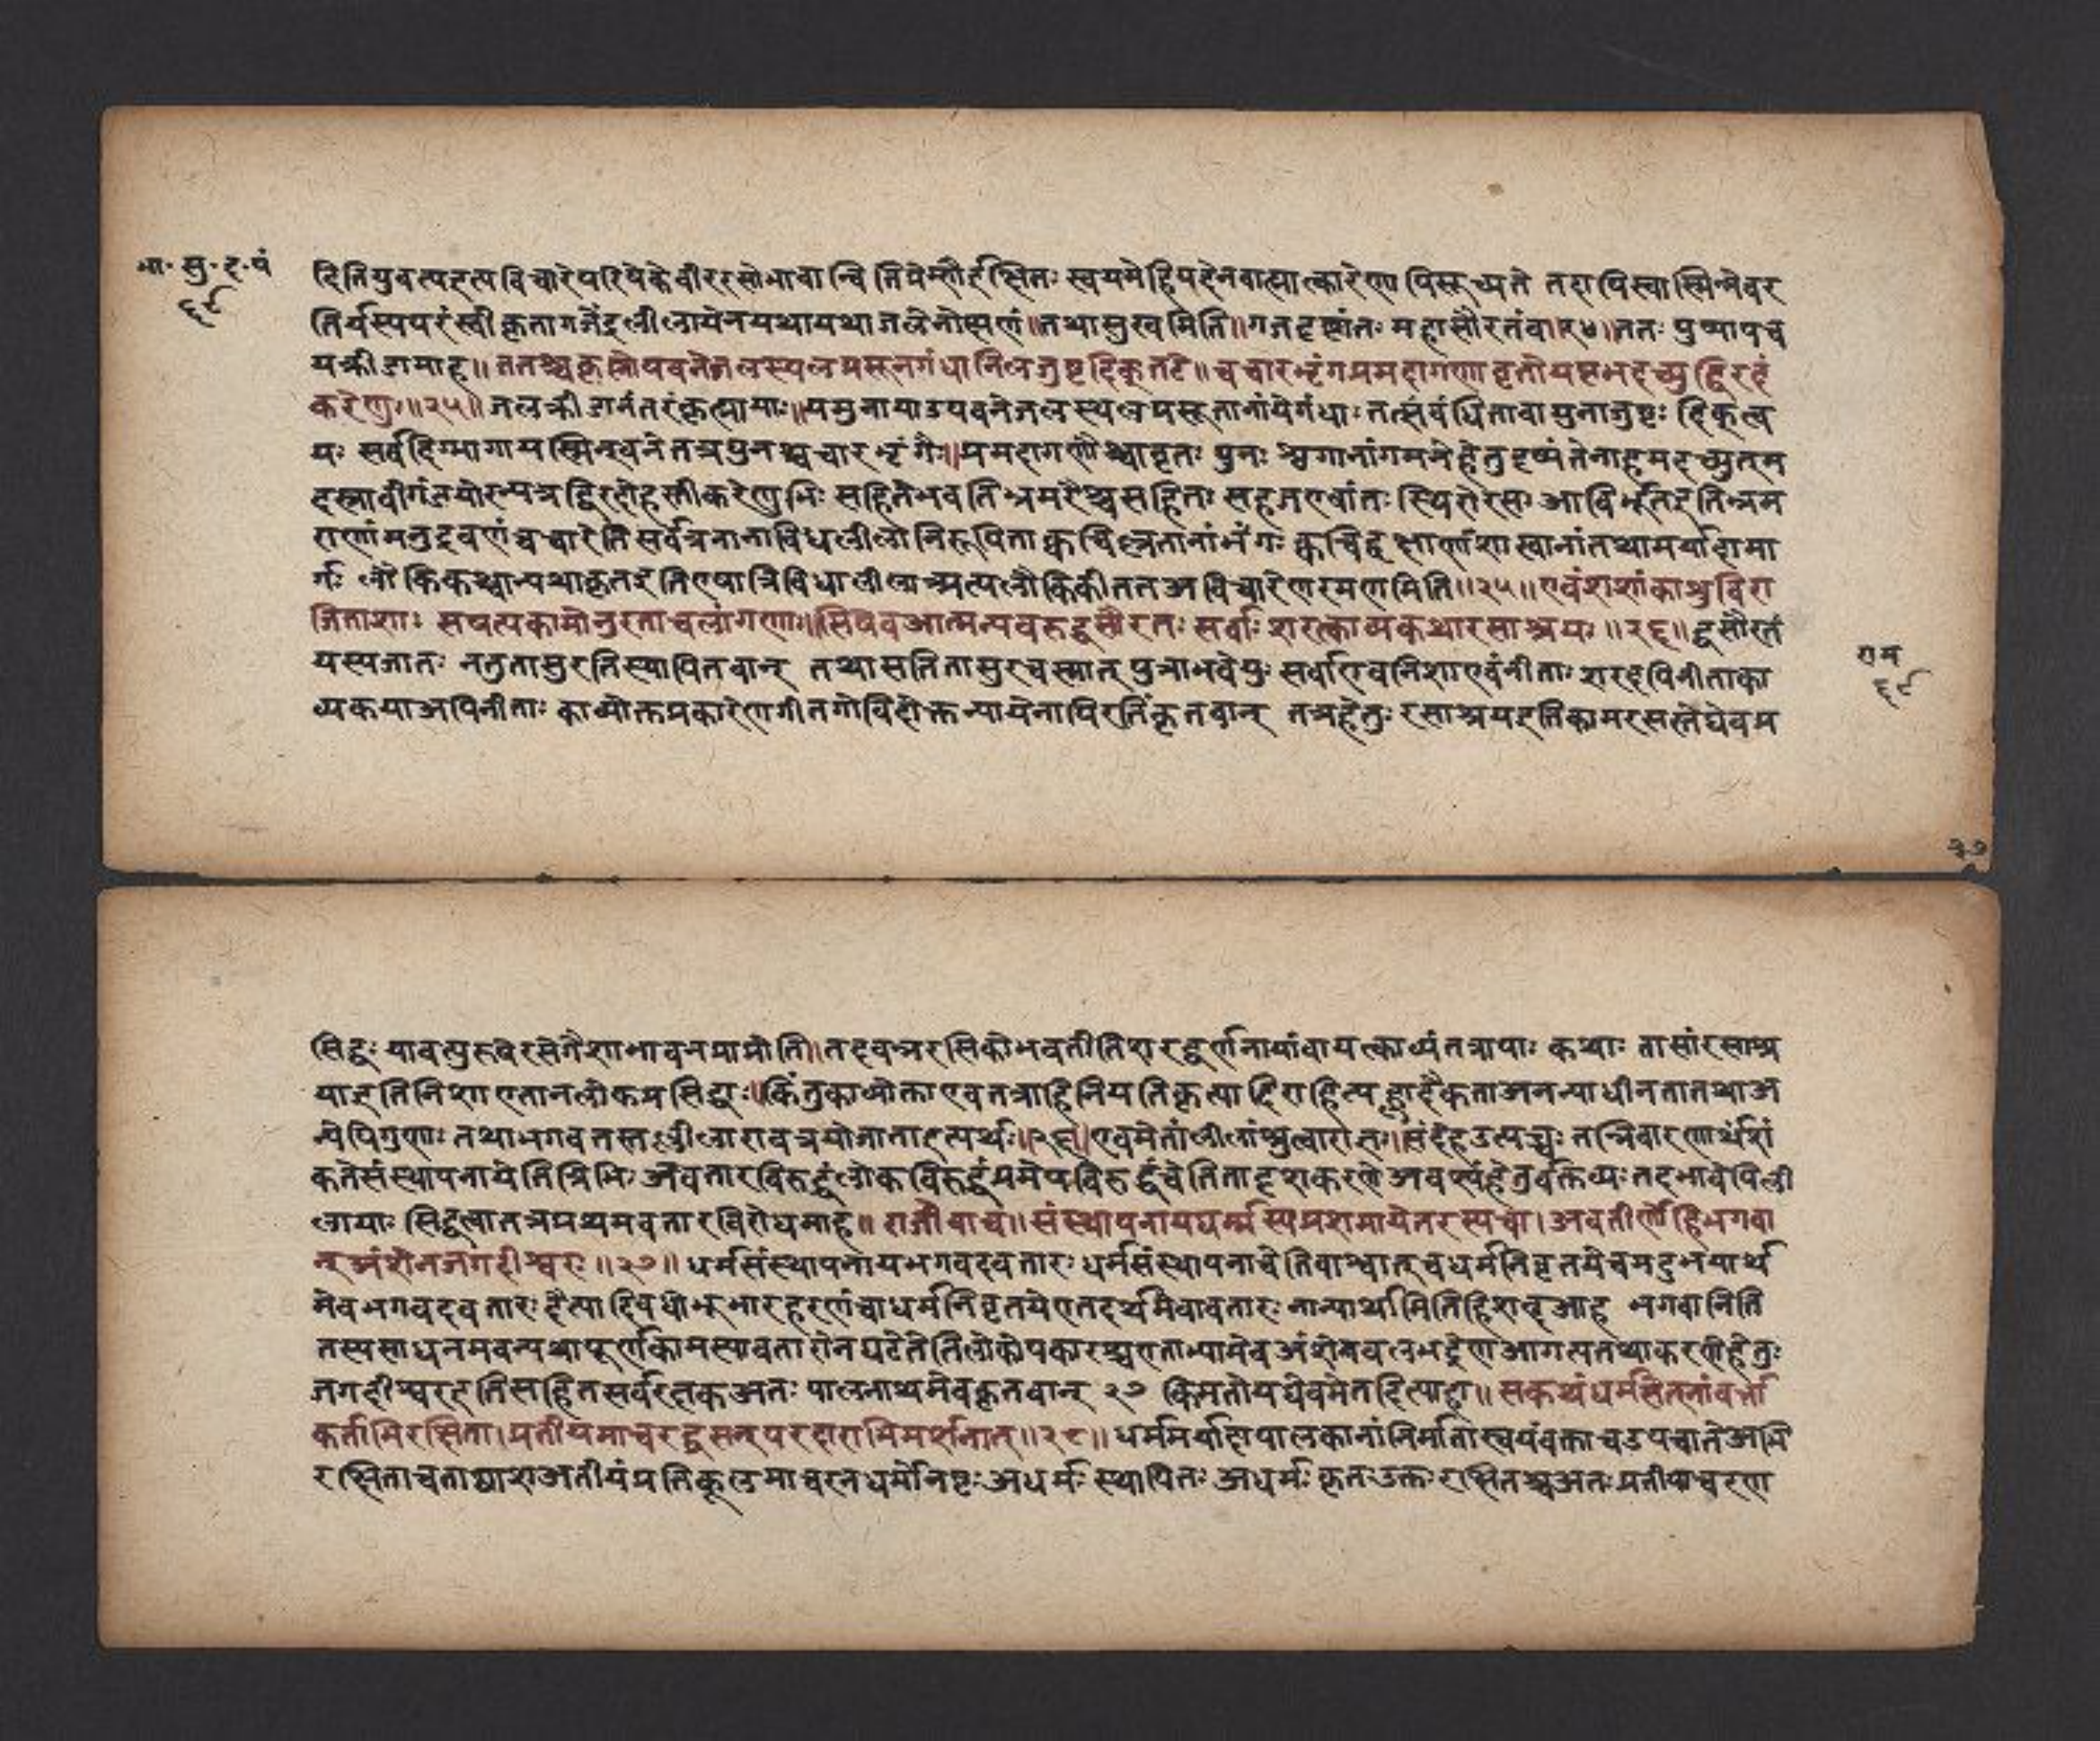 भा. सु. द. पं
६९
दितियुवत्यइत्यविचारेपरिषेकेवीररसोभावान्वितिप्रेम्णैर्इक्षितः स्वयमेद्विपदेनबात्कारेणापिसूच्यते तदापिस्वास्मिन्नेवर
तिर्यस्यपरंस्वीकृतागजेंद्रलीलायेनयथायथाजलेनोक्षणं॥तथासुखमिति॥गजदृष्टांतः महासौरतंवा।२४।ततः पुष्पापच
यक्रीडामाह॥ततश्चकृष्णोपवनेजलस्थलप्रसूनगंधानिलजुष्टदिक्तटे॥चचारभृंगप्रमदागणावृतोयथामदच्युद्द्विरदः
करेणुः॥२५॥जलक्रीडानंतरंकृत्यामाः॥यमुनायाउपवनेजलस्थलप्रसूतानांयेगंधाः तत्संबंधितावायुनाजुष्टः दिक्ल
यः सर्वदिग्भागायस्मिन्वने तत्रपुनश्चचारभृंगैः॥प्रमदागणैश्चावृतः पुनः श्वगानांगमनेहेतुदृष्यंतेनाहमदच्युतम
दस्नावीगंडयोरन्यत्रद्विरदोहस्तीकरेणुभिः सहितोभवतिभ्रमरैश्चसहितः सहजएवांतः स्थितोरसः आविर्भूतइतिभ्रम
राणांमनुद्रवणंचचारेतिसर्वत्रनानाविधलीलोनिरूपिताक्वचिल्लतानांभंगः क्वचिद्वृक्षाणांशाखानांतथामर्यादामा
र्गः लौकिकश्चान्यथाकृतइतिएषात्रिविधालीलाअत्यलौकिकीततअविचारेणरमणमिति॥२५॥एवंशशांकाशुविरा
जितानिशाः सषत्यकामोनुरताबलांगणाः॥सिषेवआत्मन्यवरुद्धसौरतः सर्वाः शरत्काव्यकथारसाश्रयाः॥२६॥द्धसौरतं
यस्यजातः नतुतासुरतिस्थापितवान् तथासतितासुरवस्नात् पुत्राभवेयुः सर्वाएवनिशाएवंनीताः शरदपिनीताका
व्यकथाअपिनीताः काव्योक्तप्रकारेणगीतगोविंदोक्तन्यायेनापिरतिंकृतवान् तत्रहेतुः रसाश्रयइतिकामरसस्तेष्वेवप्र
राम
६९
३७
सिद्धः यावत्पुरुषेरसेनैशाभावनप्राप्नोति॥तदेवत्ररसिकोभवतीतिशरद्वर्णनायांवायत्काव्यंतत्रायाः कथाः तासांरसाश्र
याइतिनिशाएतानलोकप्रसिद्धाः॥किंतुकाव्योक्ताएवतत्राहिनियतिकृत्यादिराहित्यह्लादैकताअनन्याधीनतातथाअ
न्येपिगुणाः तथाभगवतस्तल्लीलाएवत्रयोजाताइत्यर्थः॥२६॥एवमेतांलीलांश्रुत्वाराजः॥संदेहउत्पन्नः तन्निवारणार्थंशं
कतेसंस्थापनायेतित्रिभिः अवतारविरुद्धंलोकविरुद्धंप्रमेयविरुद्धंचेतितादृशकरणे अवश्यंहेतुर्वक्तव्यः तदभावेपिली
लायाः सिद्धत्वातत्रप्रथमवतारविरोधमाह॥राजोवाच॥संस्थापनायधर्मस्यप्रशमायेतरस्यच।अवतीर्णोहिभगवा
न्अंशेनजगदीश्वरः॥२७॥धर्मसंस्थापनायभगवदवतारः धर्मसंस्थापनाचेतिवाक्यात्चधर्मनिवृतयेचमदुभयार्थ
मेवभगवदवतारः दैत्यादिवधोभूभारहरणंचाधर्मनिवृतयेएतदर्थमेवावतारः नान्यार्थमितिहिशब्दआह भगवानिति
तस्यसाधनमवन्यथापूर्णकामस्यावतारोनघटेतेतिलोकोपकारश्चएताभ्यामेवअंशेनबलभद्रेणआगत्यतथाकरणेहेतुः
जगदीश्वरइतिसहितसर्वरक्षकअतः पालनाथमेवकृतवान् २७ किमतोयद्येवमेतदित्याह॥सकथंधर्मसेतूनांवक्ता
कर्ताभिरक्षिता।प्रतीपमाचरद्ब्रह्मन्परदाराभिमर्शनात्॥२८॥धर्ममर्यादापालकानांनिर्मातास्वयंवक्ताचउपद्याते अभि
रक्षिताचतादृशअतीपंप्रतिकूलमाचरनधर्मोनिष्टः अधर्मः स्थापितः अधर्मः कृतः उक्तः रक्षितश्चअतः प्रतीपाचरण